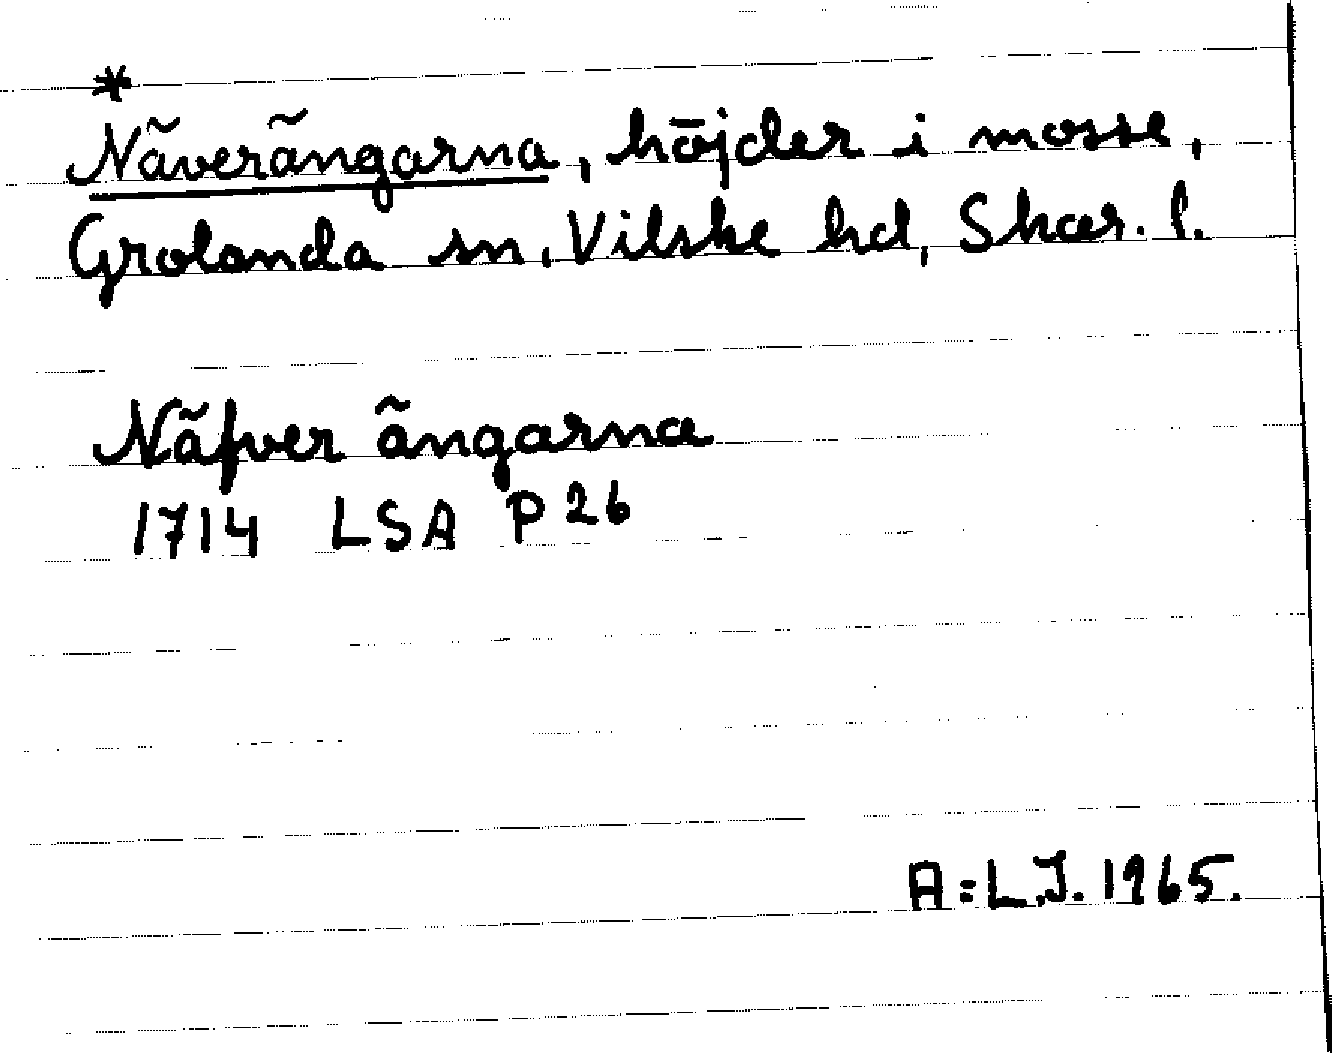 *
Näverängarna, höjder i mosse,
Grolanda sn, Vilske hd, Skar. l.
Näfver ängarna
1714 LSA P 26
A:L.J. 1965.